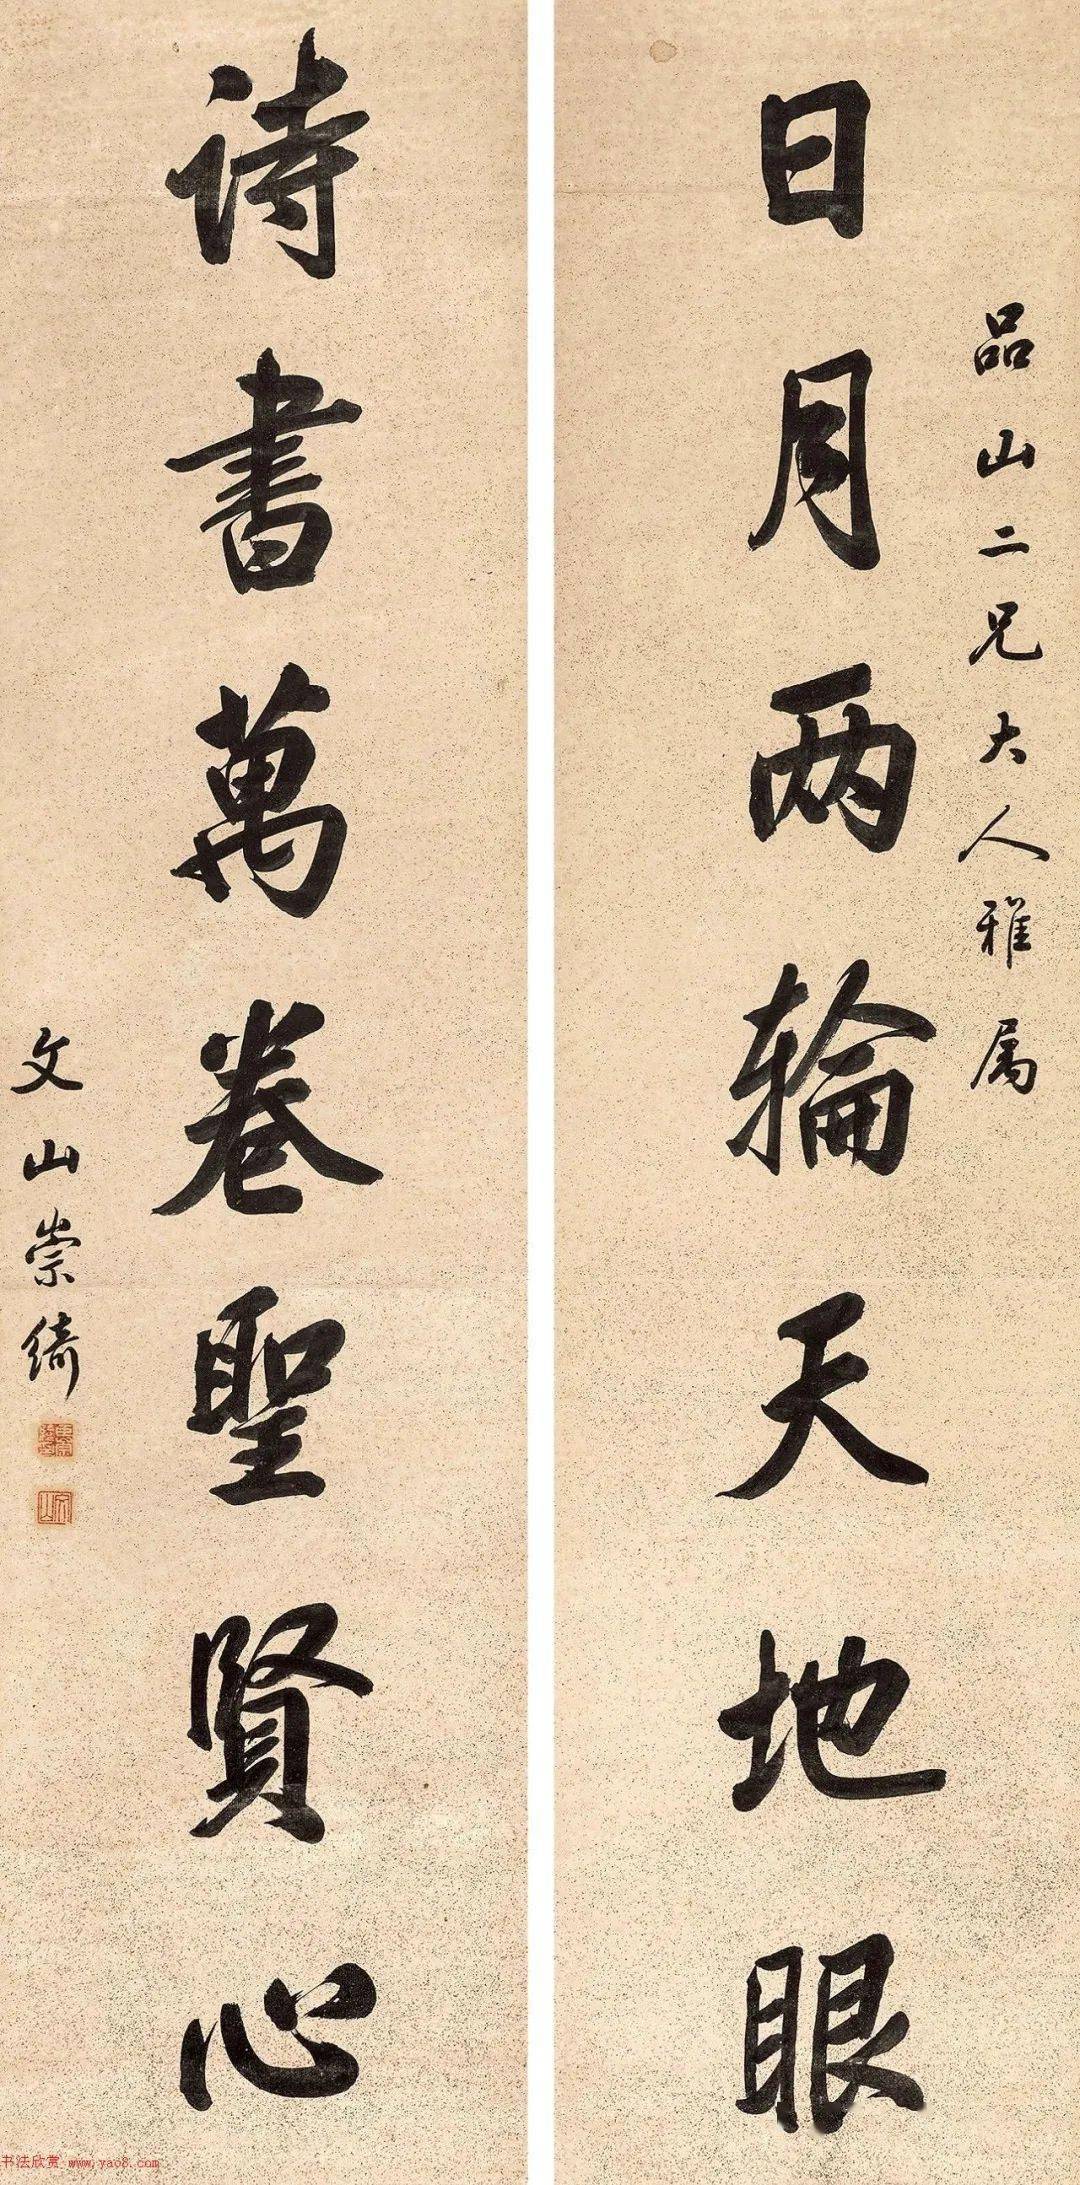 品山二兄大人雅属
日月两轮天地眼
诗書萬卷聖賢心
文山崇绮
书法欣赏 www.yao8.com